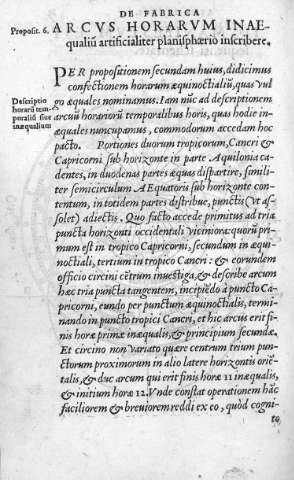 DE FABRICA
Proposit. 6. ARCVS HORARVM INAE-
qualiũ artificialiter planisphærio inscribere.
PER propositionem secundam huius, didicimus
confectionem horarum æquinoctialiũ, quas vul
Descriptio
horarũ tem-
poraliũ siue
inæqualium
go æquales nominamus. Iam nũc ad descriptionem
arcuũ horariorũ temporalibus horis, quas hodie in-
æquales nuncupamus, commodorum accedam hoc
pacto. Portiones duorum tropicorum, Cancri &
Capricorni sub horizonte in parte Aquilonia ca-
dentes, in duodenas partes æquas dispartire, simili-
ter semicirculum AEquatoris sub horizonte con-
tentum, in totidem partes distribue, punctis (vt as-
solet) adiectis. Quo facto accede primitus ad tria
puncta horizonti occidentali viciniora: quorũ pri-
mum est in tropico Capricorni, secundum in æqui-
noctiali, tertium in tropico Cancri: & eorundem
officio circini cẽtrum inuestiga, & describe arcum
hæc tria puncta tangentem, incipiẽdo à puncto Ca-
pricorni, eundo per punctum æquinoctialis, termi-
nando in puncto tropici Cancri, et hic arcus erit fi-
nis horæ primæ inæqualis, & principium secundæ.
Et circino non variato quære centrum trium pun-
ctorum proximorum in alio latere horizontis oriẽ-
talis, & duc arcum qui erit finis horæ 11 inæqualis,
& initium horæ 12. Vnde constat operationem hãc
faciliorem & breuiorem reddi ex eo, quòd cogni-
to